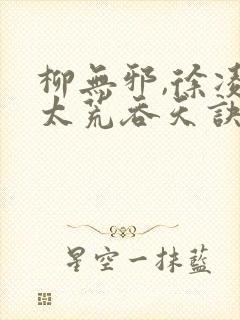 柳無邪,徐凌
太荒吞天訣
星空一抹藍